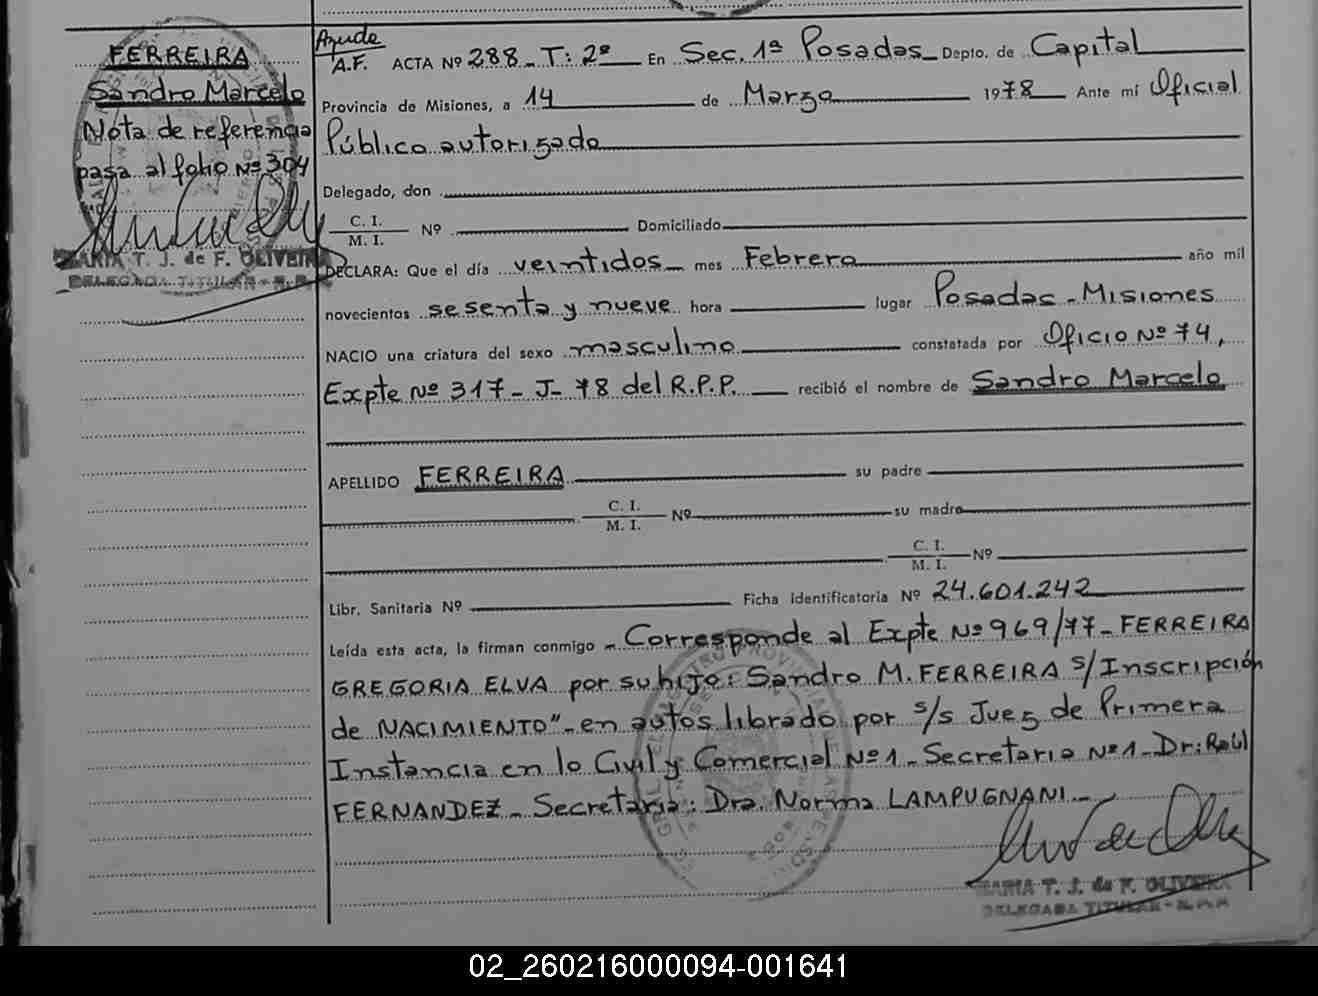 FERREIRA
Sandro Marcelo
Nota de referencia
pasa al folio Nº 304
MARIA T. J. de F. OLIVEIRA
DELEGADA TITULAR - R.P.P.
Ayude
A.F. ACTA Nº 288 - T: 2º En Sec. 1ª Posadas Depto. de Capital
Provincia de Misiones, a 14 de Marzo 1978 Ante mí Oficial
Público autorizado
Delegado, don
C. I.
M. I. Nº Domiciliado
DECLARA: Que el día veintidos mes Febrero año mil
novecientos sesenta y nueve hora lugar Posadas - Misiones
NACIO una criatura del sexo masculino constatada por Oficio Nº 74,
Expte Nº 317 - J - 78 del R.P.P. recibió el nombre de Sandro Marcelo
APELLIDO FERREIRA su padre
C. I.
M. I. Nº su madre
C. I.
M. I. Nº
Libr. Sanitaria Nº Ficha identificatoria Nº 24.601.242
Leída esta acta, la firman conmigo - Corresponde al Expte Nº 969/77 - FERREIRA
GREGORIA ELVA por su hijo: Sandro M. FERREIRA s/Inscripción
de NACIMIENTO" - en autos librado por s/s Juez de Primera
Instancia en lo Civil y Comercial Nº 1 - Secretaria Nº 1 - Dr: Raúl
FERNANDEZ - Secretaria: Dra. Norma LAMPUGNANI -
MARIA T. J. de F. OLIVEIRA
DELEGADA TITULAR - R.P.P.
02_260216000094-001641